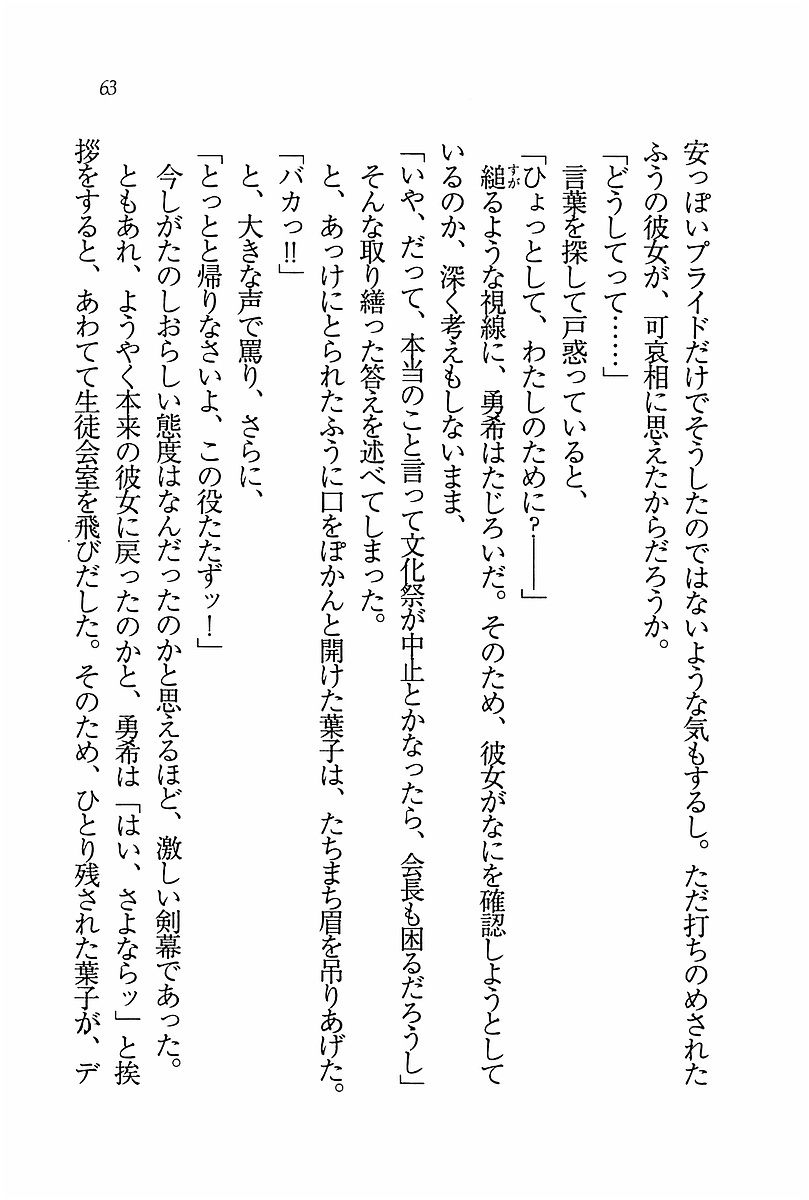 63
安っぽいプライドだけでそうしたのではないような気もするし。ただ打ちのめされた
ふうの彼女が、可哀相に思えたからだろうか。
「どうしてって……」
言葉を探して戸惑っていると、
「ひょっとして、わたしのために?――」
縋るような視線に、勇希はたじろいだ。そのため、彼女がなにを確認しようとして
すが
いるのか、深く考えもしないまま、
「いや、だって、本当のこと言って文化祭が中止とかなったら、会長も困るだろうし」
そんな取り繕った答えを述べてしまった。
と、あっけにとられたふうに口をぽかんと開けた葉子は、たちまち眉を吊りあげた。
「バカっ!!」
と、大きな声で罵り、さらに、
「とっとと帰りなさいよ、この役たたずッ!」
今しがたのしおらしい態度はなんだったのかと思えるほど、激しい剣幕であった。
ともあれ、ようやく本来の彼女に戻ったのかと、勇希は「はい、さよならッ」と挨
拶をすると、あわてて生徒会室を飛びだした。そのため、ひとり残された葉子が、デ